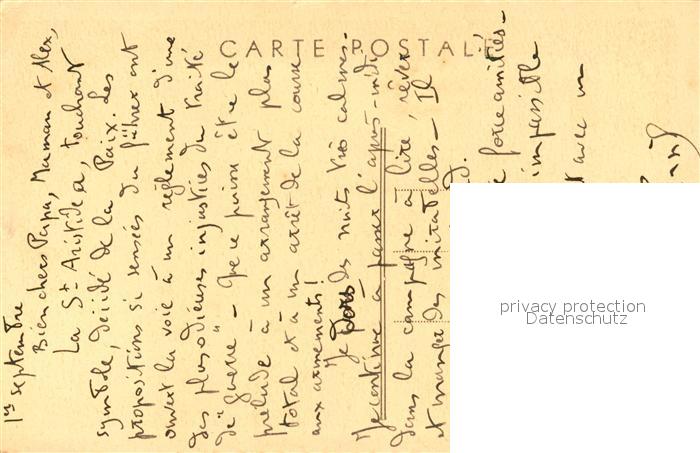 CARTE POSTALE
1er septembre
Bien chers Papa, Maman et Alex,
La St Aristide a, touchant
symbole, décidé de la Paix. Les
propositions si sensées du führer ont
ouvert la voie à un règlement d'une
des plus odieuses injustices du traité
de "guerre" - Que ce puisse être le
prélude à un arrangement plus
total et à un arrêt de la course
aux armements!
Je dors des nuits très calmes -
Je continue à passer l'après-midi
dans la campagne à lire, rêver
et manger des mirabelles - Il
force amitiés -
impassible
avec un
privacy protection
Datenschutz